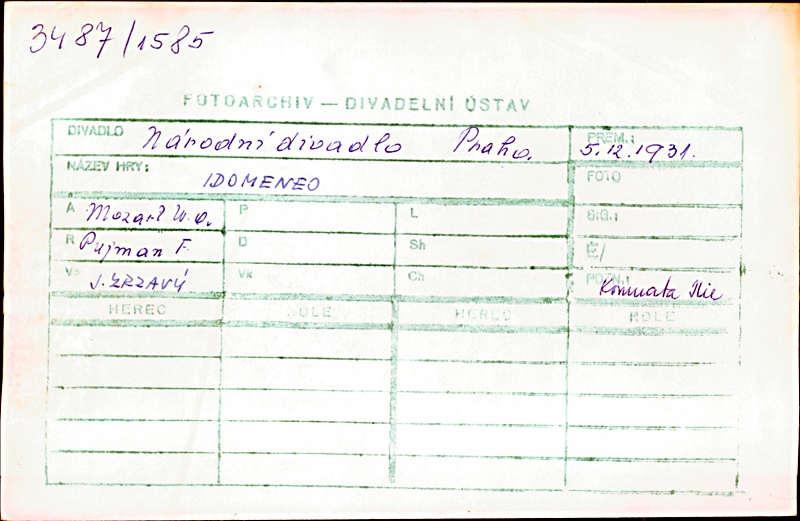 3487/1585
FOTOARCHIV — DIVADELNÍ ÚSTAV
DIVADLO Národní divadlo Praha. PREM.: 5.12.1931.
NÁZEV HRY: IDOMENEO FOTO
A Mozart W.A. P L SIG.:
R Pujman F. D Sh Č/
Vs J. ZRZAVÝ Vk Ch POZN.: Komnata Ilie
HEREC ROLE HEREC ROLE